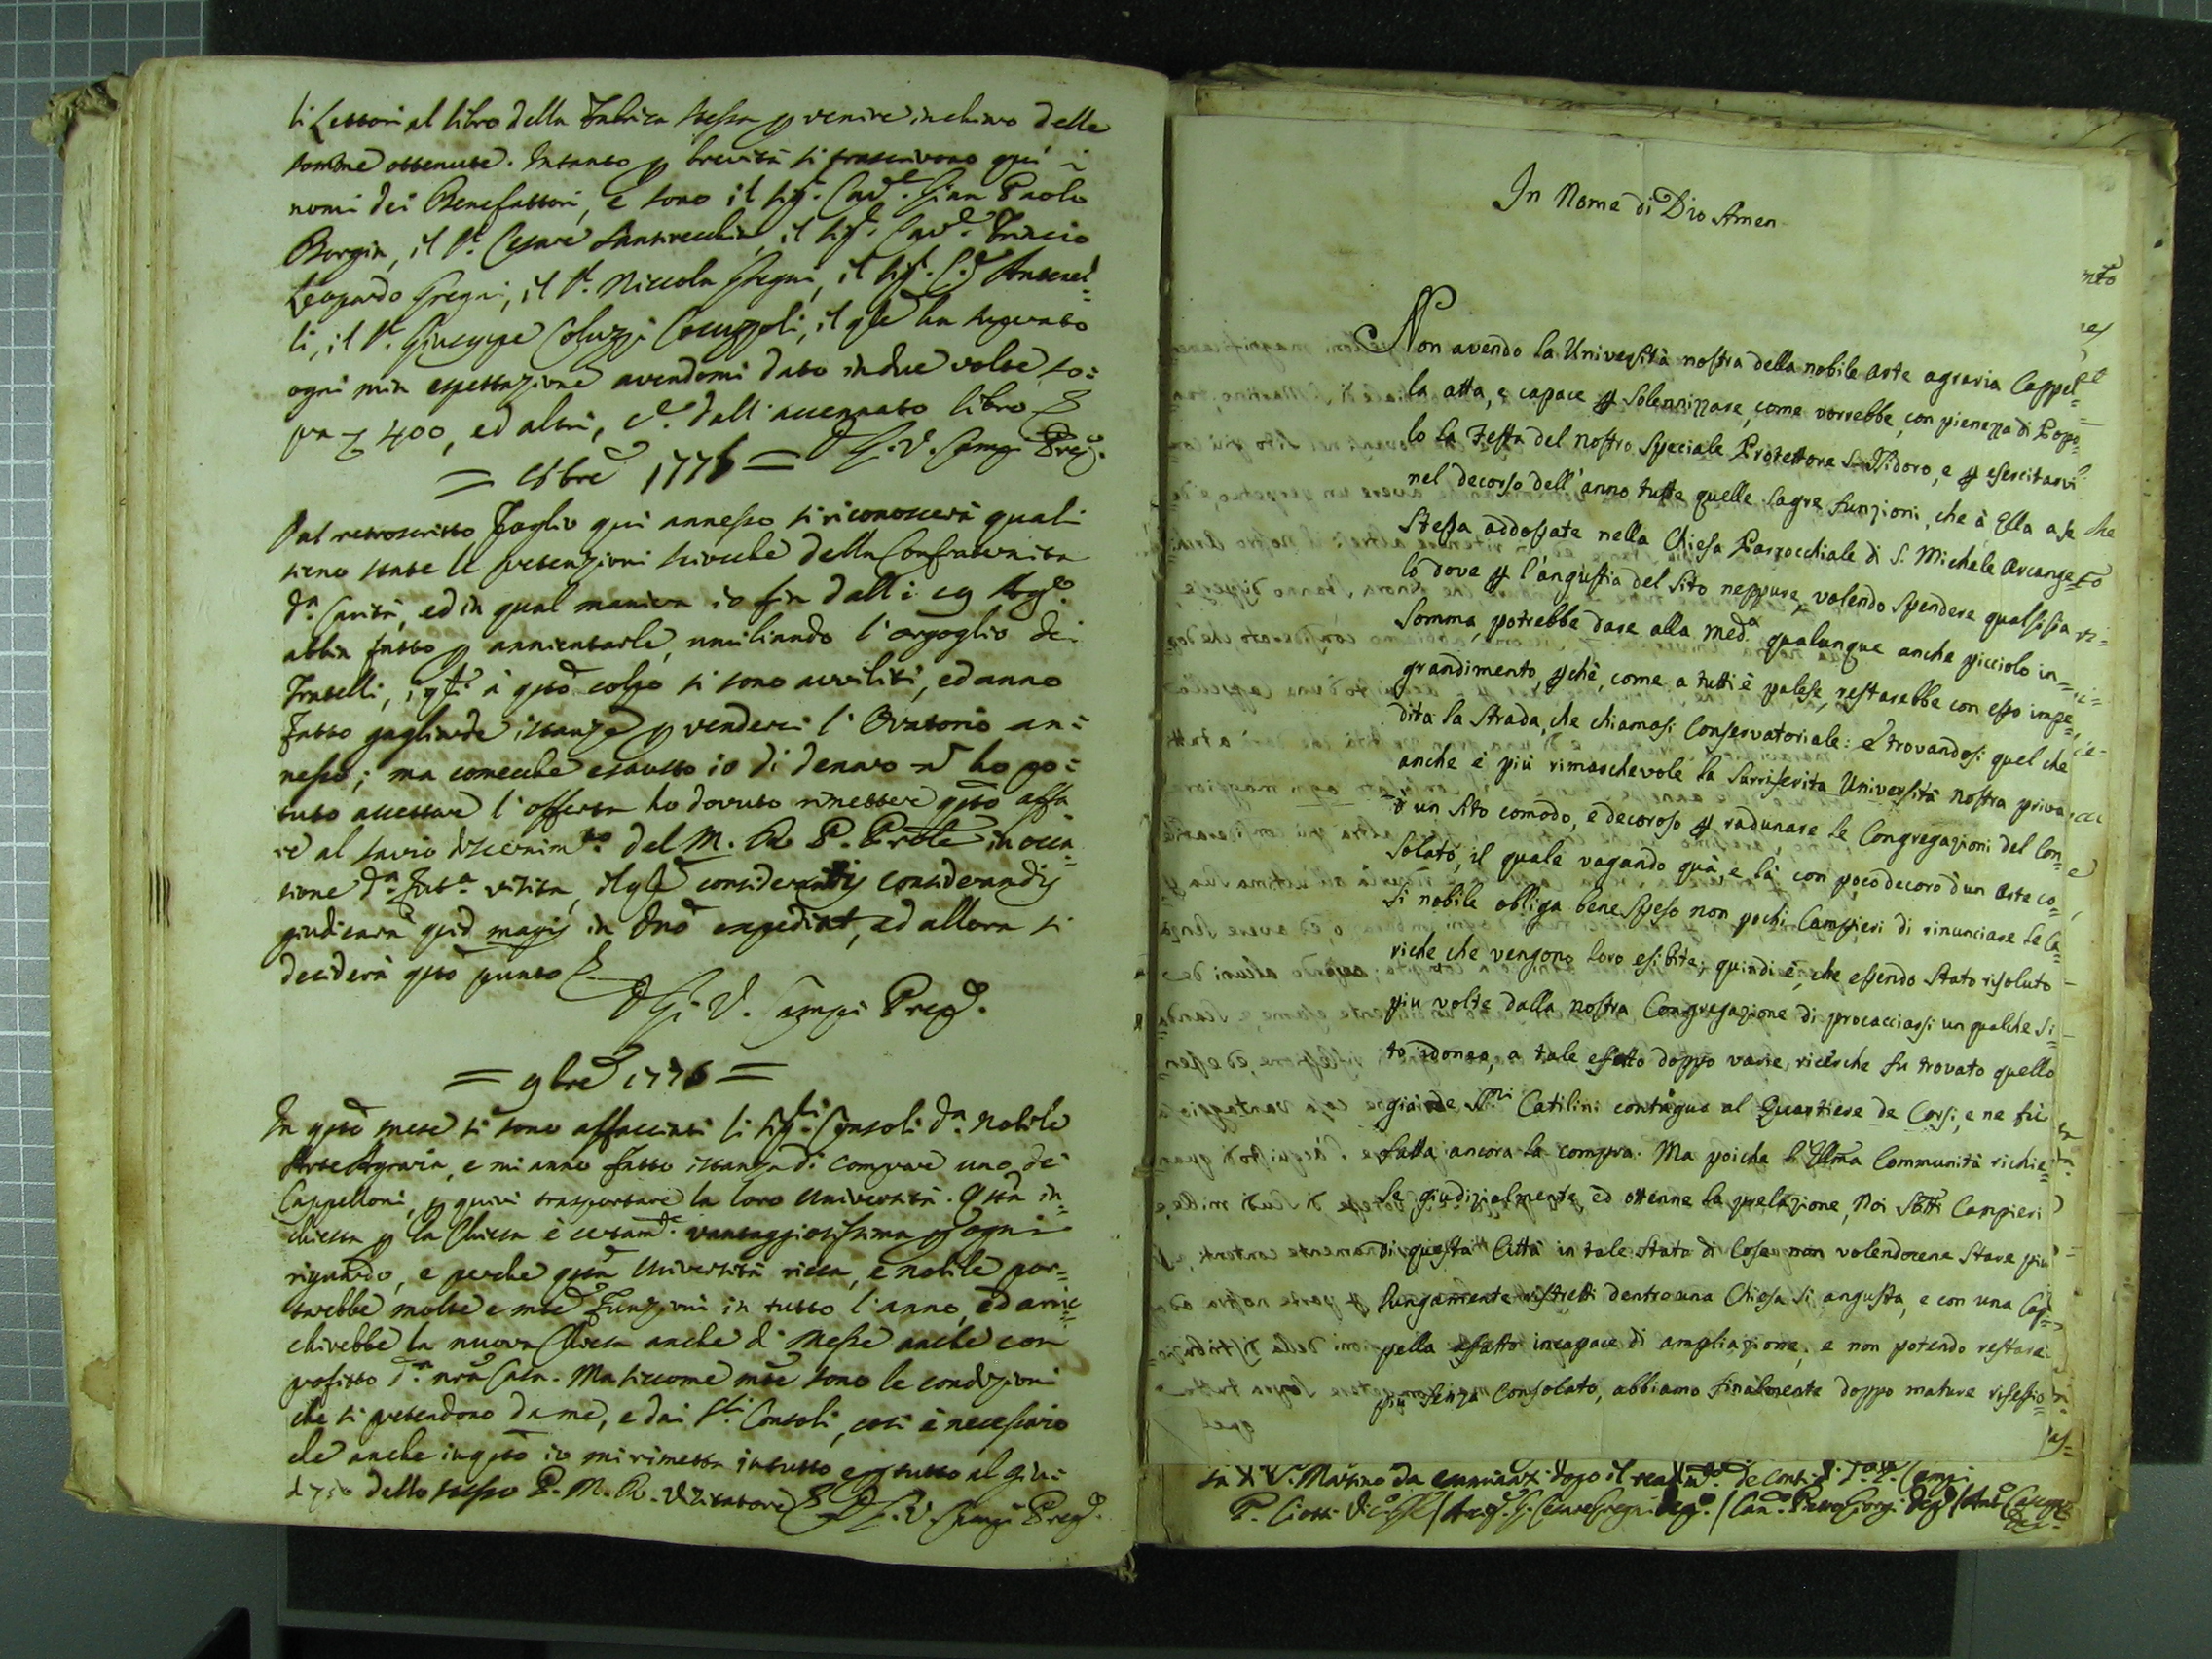 li Lettori al libro della Fabrica stessa p venire in chiaro delle
somme ottenute. Intanto p brevità si trascrivono quì i
nomi dei Benefattori, e sono il Sig.r Cav.e Gian Paolo
Borgia, il S.r Cesare Santovecchia, il Sig.r Cav.e Fabricio
Leopardo Gregni, il S.r Niccola Gregni, il Sig.r Antonel=
li, il S.r Giuseppe Coluzzi Cocuzzoli, il qle ha superato
ogni mia espettazione avendomi dato in due volte so=
pra 400, ed altri, dall'accennato libro
F. G. V. Campi Preg.o
= 1776 =
Dal retroscritto Foglio qui annesso si riconoscerà quali
sieno state le pretenzioni sciocche della Confraternita
d.a Carità, ed in qual maniera io fin dalli 19 Ag.o
abbia fatto p annientarle, umiliando l'orgoglio dei
Fratelli, i qli à qsto colpo si sono avviliti, ed anno
fatto gagliarde istanze p venderci l'Oratorio an=
nesso; ma comecche esausto io di denaro ñ ho po=
tuto accettare l'offerta ho dovuto rimettere qsto affa
re al savio discernim.to del M. R. P. Prõle in occa=
sione d.a visita, il qle consideratis considerandis
giudicarà quid magis in Dno expediat, ed allora si
deciderà qsto punto
F. G. V. Campi Preg.o
= 9bre 1776 =
In qsto mese si sono affacciati li Sig.ri Consoli d.a Nobile
Arte Agraria, e mi anno fatto istanza di comprare uno de
Cappelloni, p quivi trasportare la loro Università. Qsta in=
chiesta p la Chiesa è certam.e vantaggiosissima p ogni
riguardo, e perche qsta Università ricca, e nobile por=
tarebbe molte e mte Funzioni in tutto l'anno, ed arric=
chirebbe la nuova Chiesa anche di Messe anche con
profitto d.a nra Casa. Ma siccome mte sono le condizioni
che si pretendono da me, e dai S.ri Consoli, così è necessario
che anche in qsto io mi rimetta in tutto e p tutto al giu=
dizio dello stesso P. M. R. Visitatore F. G. V. Campi Preg.o
In Nome di Dio Amen
Non avendo la Università nostra della nobile arte agraria Cappel=
la atta, e capace p solennizzare, come vorrebbe, con pienezza di Popo=
lo la Festa del nostro speciale Protettore S. Isidoro, e p esercitarvi
nel decorso dell'anno tutte quelle sagre funzioni, che à Ella a se
stessa addossate nella Chiesa Parrocchiale di S. Michele Arcange=
lo dove p l'angustia del sito neppure, volendo spendere qualsisia
somma, potrebbe dare alla med.a qualunque anche picciolo in=
grandimento, pchè, come a tutti è palese, restarebbe con esso impe=
dita la strada, che chiamasi Conservatoriale: e trovandosi quel che
anche è più rimarchevole la surriferita Università nostra priva
d'un sito comodo, e decoroso p radunare le Congregazioni del Con=
solato, il quale vagando quà, e là con poco decoro d'un arte co=
sì nobile obliga bene speso non pochi Campieri di rinunciare le Ca=
riche che vengono loro esibite; quindi è, che essendo stato risoluto
piu volte dalla nostra Congregazione di procacciarsi un qualche si=
to idoneo, a tale effetto doppo varie ricerche fu trovato quello
già de SS.ri Catilini contiguo al Quartiere de Corsi, e ne fù
fatta ancora la compra. Ma poiche l'Illma Communità richie=
se giudizialmente, ed ottenne la prelazione, Noi Sotti Campieri
di questa Città in tale stato di cose non volendocene stare più
lungamente ristretti dentro una Chiesa sì angusta, e con una Cap=
pella affatto incapace di ampliazione, e non potendo restare
più senza Consolato, abbiamo finalmente doppo mature riflessio=